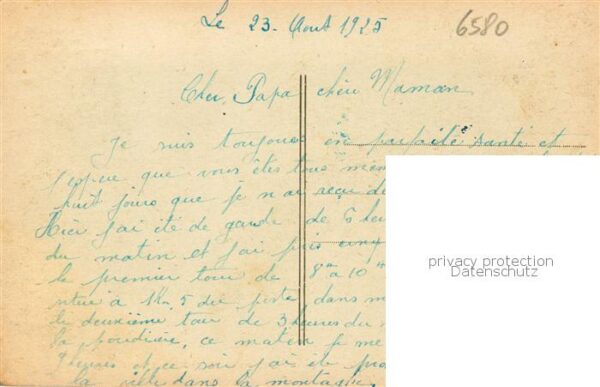 Le 23 Aout 1925
6580
Cher Papa chère Maman
Je suis toujours en parfaite santé et
j'espère que vous êtes tous
huit jours que je n'ai reçu de
Hier j'ai été de garde de 6
du matin et j'ai pris cinq
le premier tour de 8 à 10
à 1K 5 du poste dans
le deuxième tour de 3 heures du
la poudière, ce matin je me
heures et ce soir j'ai été
la ville dans la montagne
privacy protection
Datenschutz